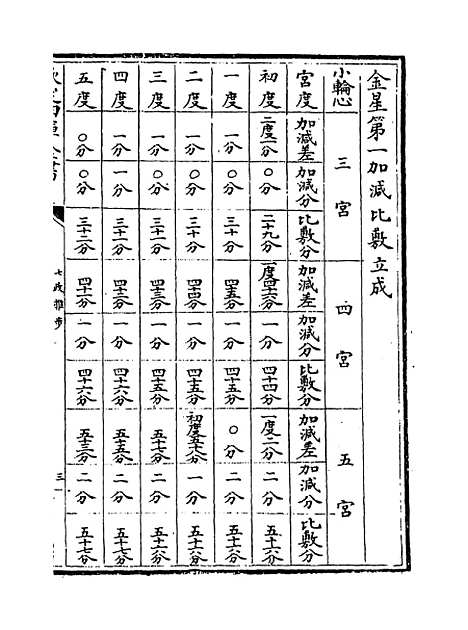 金星第一加減比敷立成
小輪心 三宮 四宮 五宮
宮度 加減差 加減分 比敷分 加減差 加減分 比敷分 加減差 加減分 比敷分
初度 二度一分 〇分 二十九分 一度四十六分 一分 四十四分 一度二分 二分 五十六分
一度 一分 〇分 三十分 四十五分 一分 四十五分 〇分 二分 五十六分
二度 一分 〇分 三十分 四十四分 一分 四十五分 初度五十八分 一分 五十六分
三度 一分 〇分 三十一分 四十三分 一分 四十五分 五十七分 二分 五十六分
四度 一分 一分 三十一分 四十三分 一分 四十六分 五十五分 二分 五十七分
五度 〇分 〇分 三十二分 四十二分 一分 四十六分 五十三分 二分 五十七分
七政推步
三